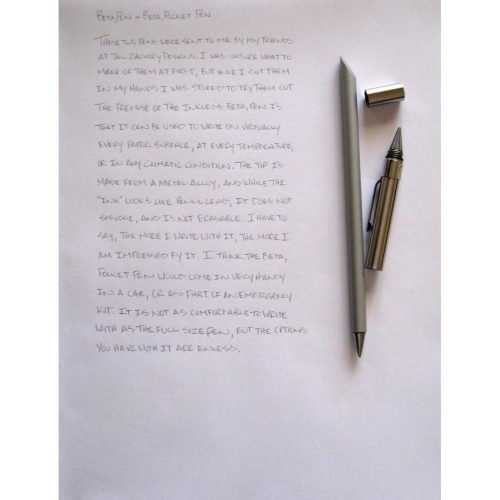 BETA PEN + BETA POCKET PEN
THESE TWO PENS WERE SENT TO ME BY MY FRIENDS
AT JAC ZAGOORY DESIGNS. I WAS UNSURE WHAT TO
MAKE OF THEM AT FIRST, BUT ONCE I GOT THEM
IN MY HANDS I WAS STOKED TO TRY THEM OUT.
THE PREMISE OF THE INKLESS BETA PEN IS
THAT IT CAN BE USED TO WRITE ON VIRTUALLY
EVERY PAPER SURFACE, AT EVERY TEMPERATURE,
OR IN ANY CLIMATIC CONDITION. THE TIP IS
MADE FROM A METAL ALLOY, AND WHILE THE
"INK" LOOKS LIKE PENCIL LEAD, IT DOES NOT
SMUDGE, AND IS NOT ERASABLE. I HAVE TO
SAY, THE MORE I WRITE WITH IT, THE MORE I
AM IMPRESSED BY IT. I THINK THE BETA
POCKET PEN WOULD COME IN VERY HANDY
IN A CAR, OR AS PART OF AN EMERGENCY
KIT. IT IS NOT AS COMFORTABLE TO WRITE
WITH AS THE FULL SIZE PEN, BUT THE OPTIONS
YOU HAVE WITH IT ARE ENLESS.